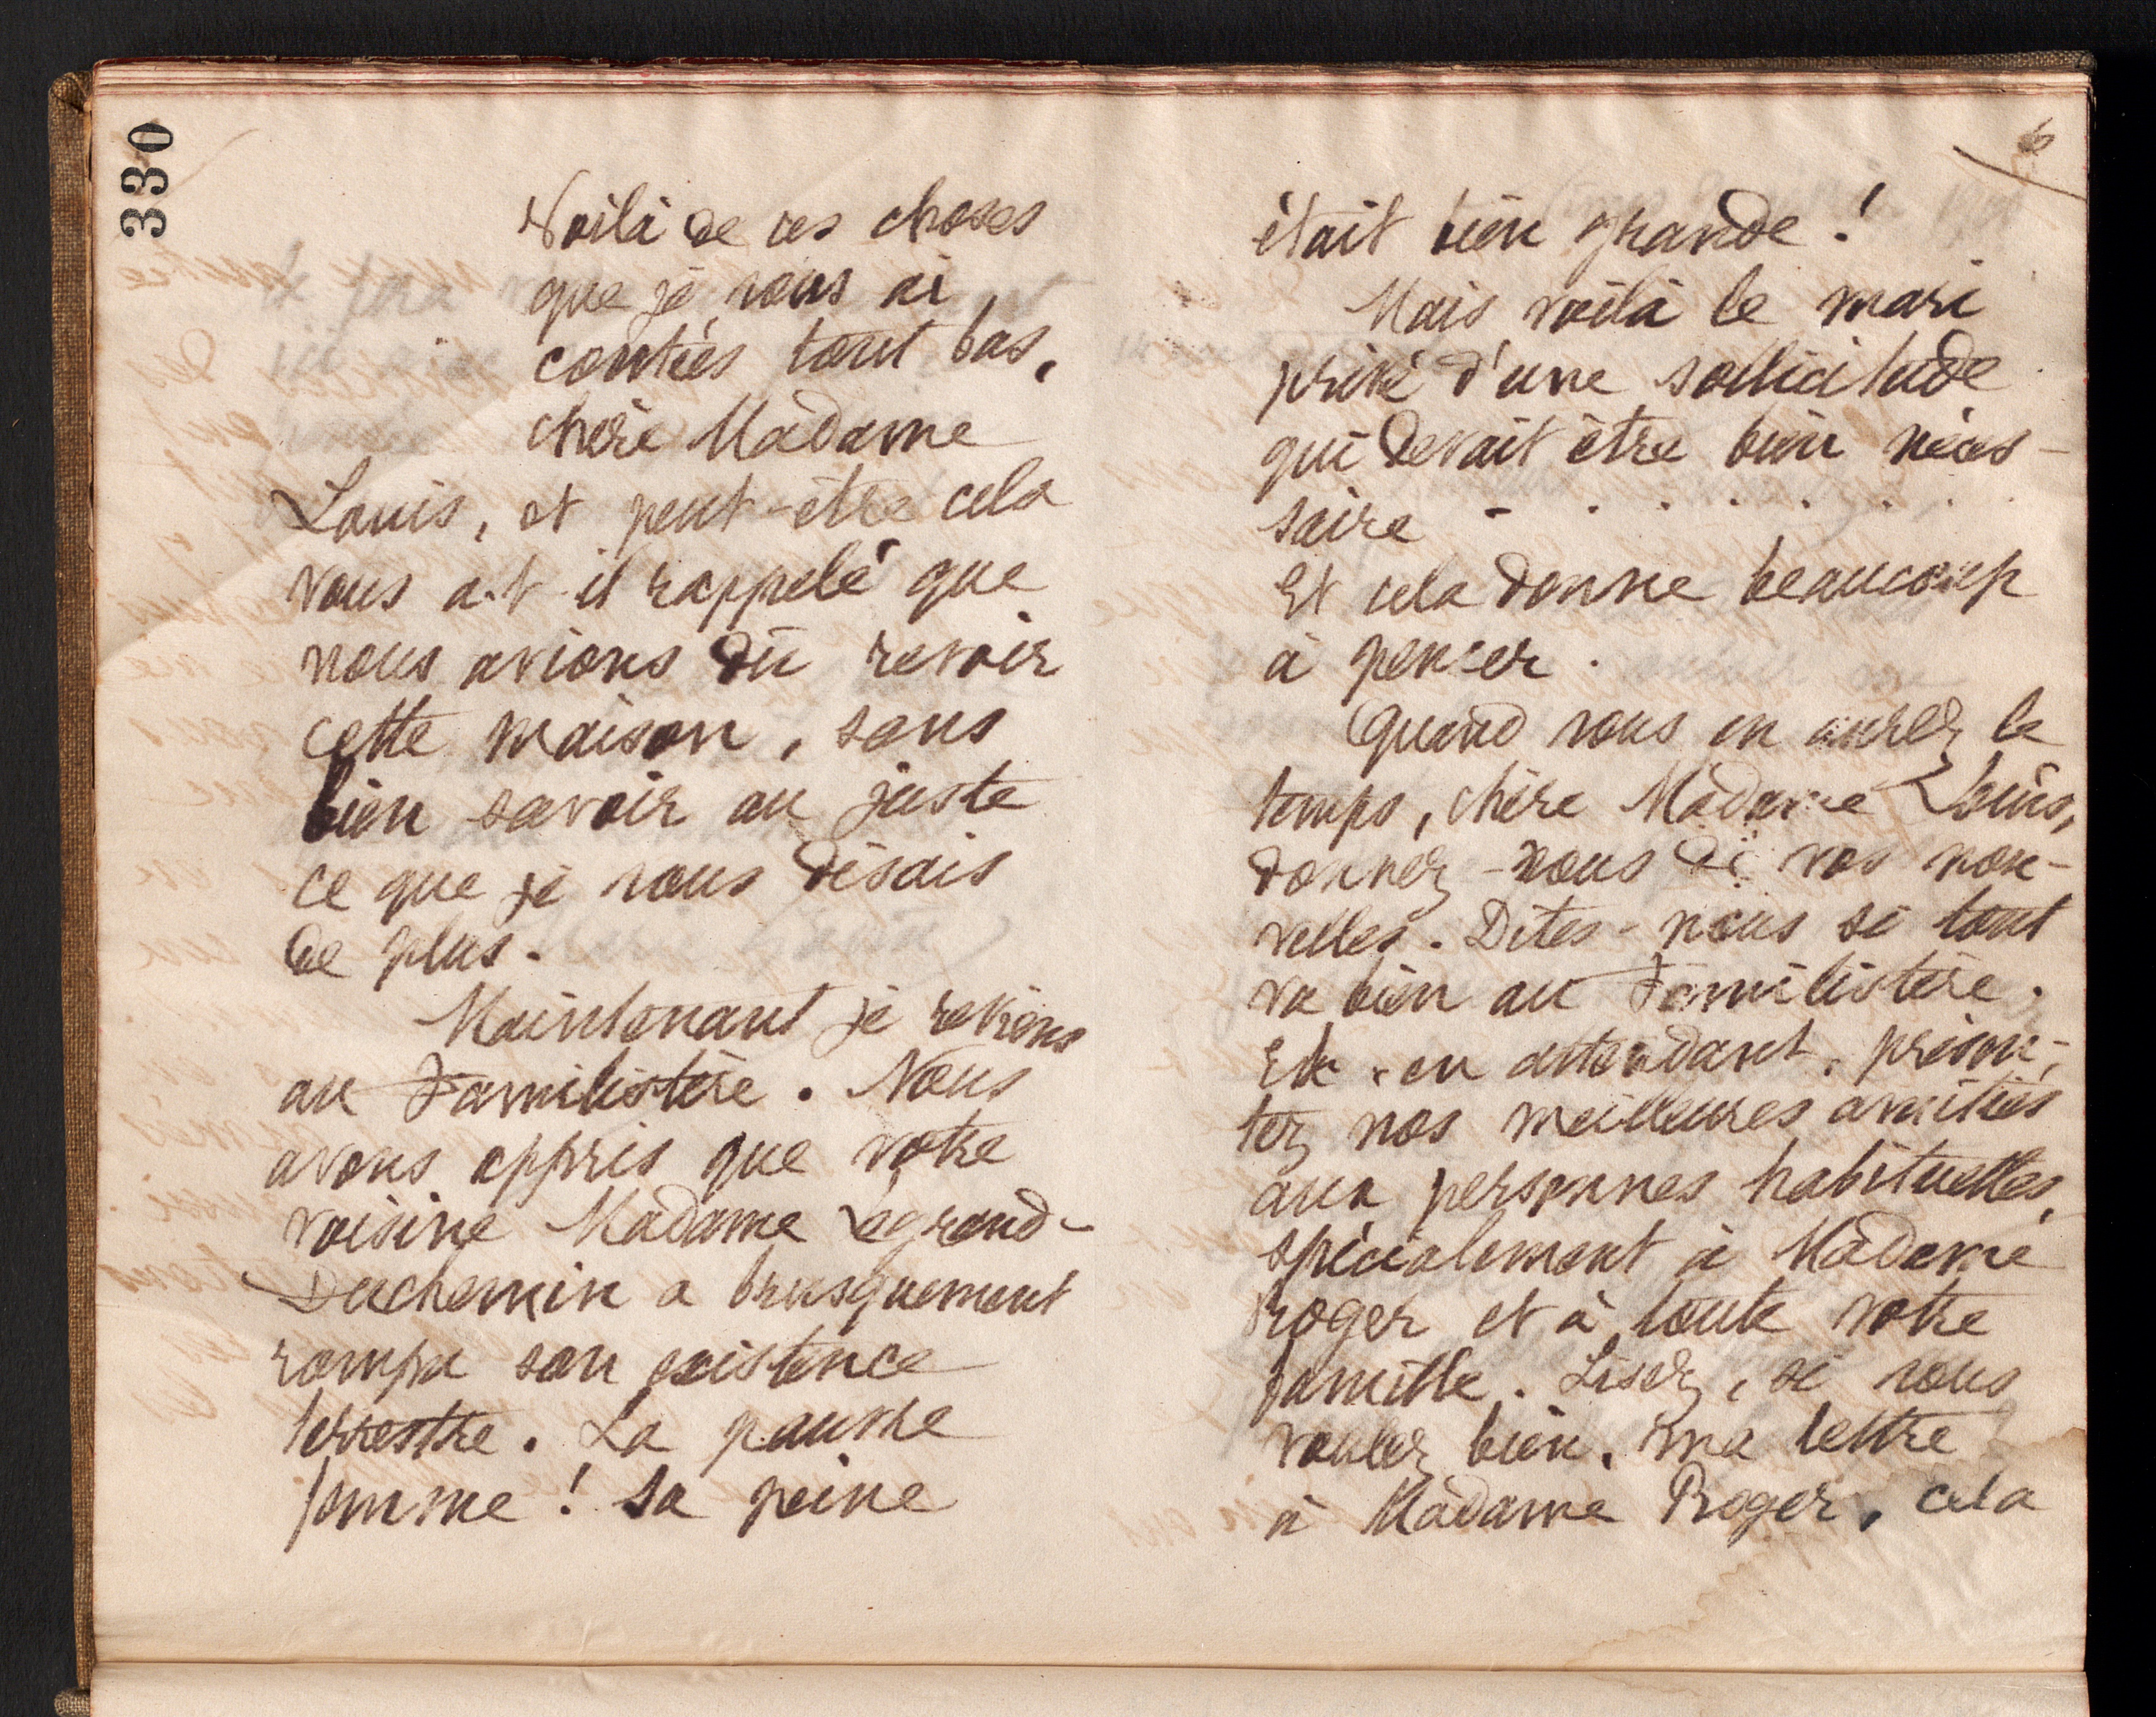 330
Voilà de ces choses
que je vous ai
contées tout bas,
chère Madame
Louis, et peut-être cela
vous a-t-il rappelé que
nous avions dû revoir
cette maison, sans
bien savoir au juste
ce que je vous disais
de plus.
Maintenant je reviens
au Familistère. Nous
avons appris que votre
voisine Madame Legrand-
Duchemin a brusquement
rompu son existence
terrestre. La pauvre
femme ! Sa peine
6
était bien grande !
Mais voilà le mari
privé d'une sollicitude
qui devait être bien néces-
saire - . . . . . . .
Et cela donne beaucoup
à penser.
Quand vous en aurez le
temps, chère Madame Louis,
donnez-nous de vos nou-
velles. Dites-nous si tout
va bien au Familistère.
Et, en attendant, présen-
tez nos meilleures amitiés
aux personnes habituelles,
spécialement à Madame
Roger et à toute votre
famille. Lisez, si vous
voulez bien, ma lettre
à Madame Roger, cela